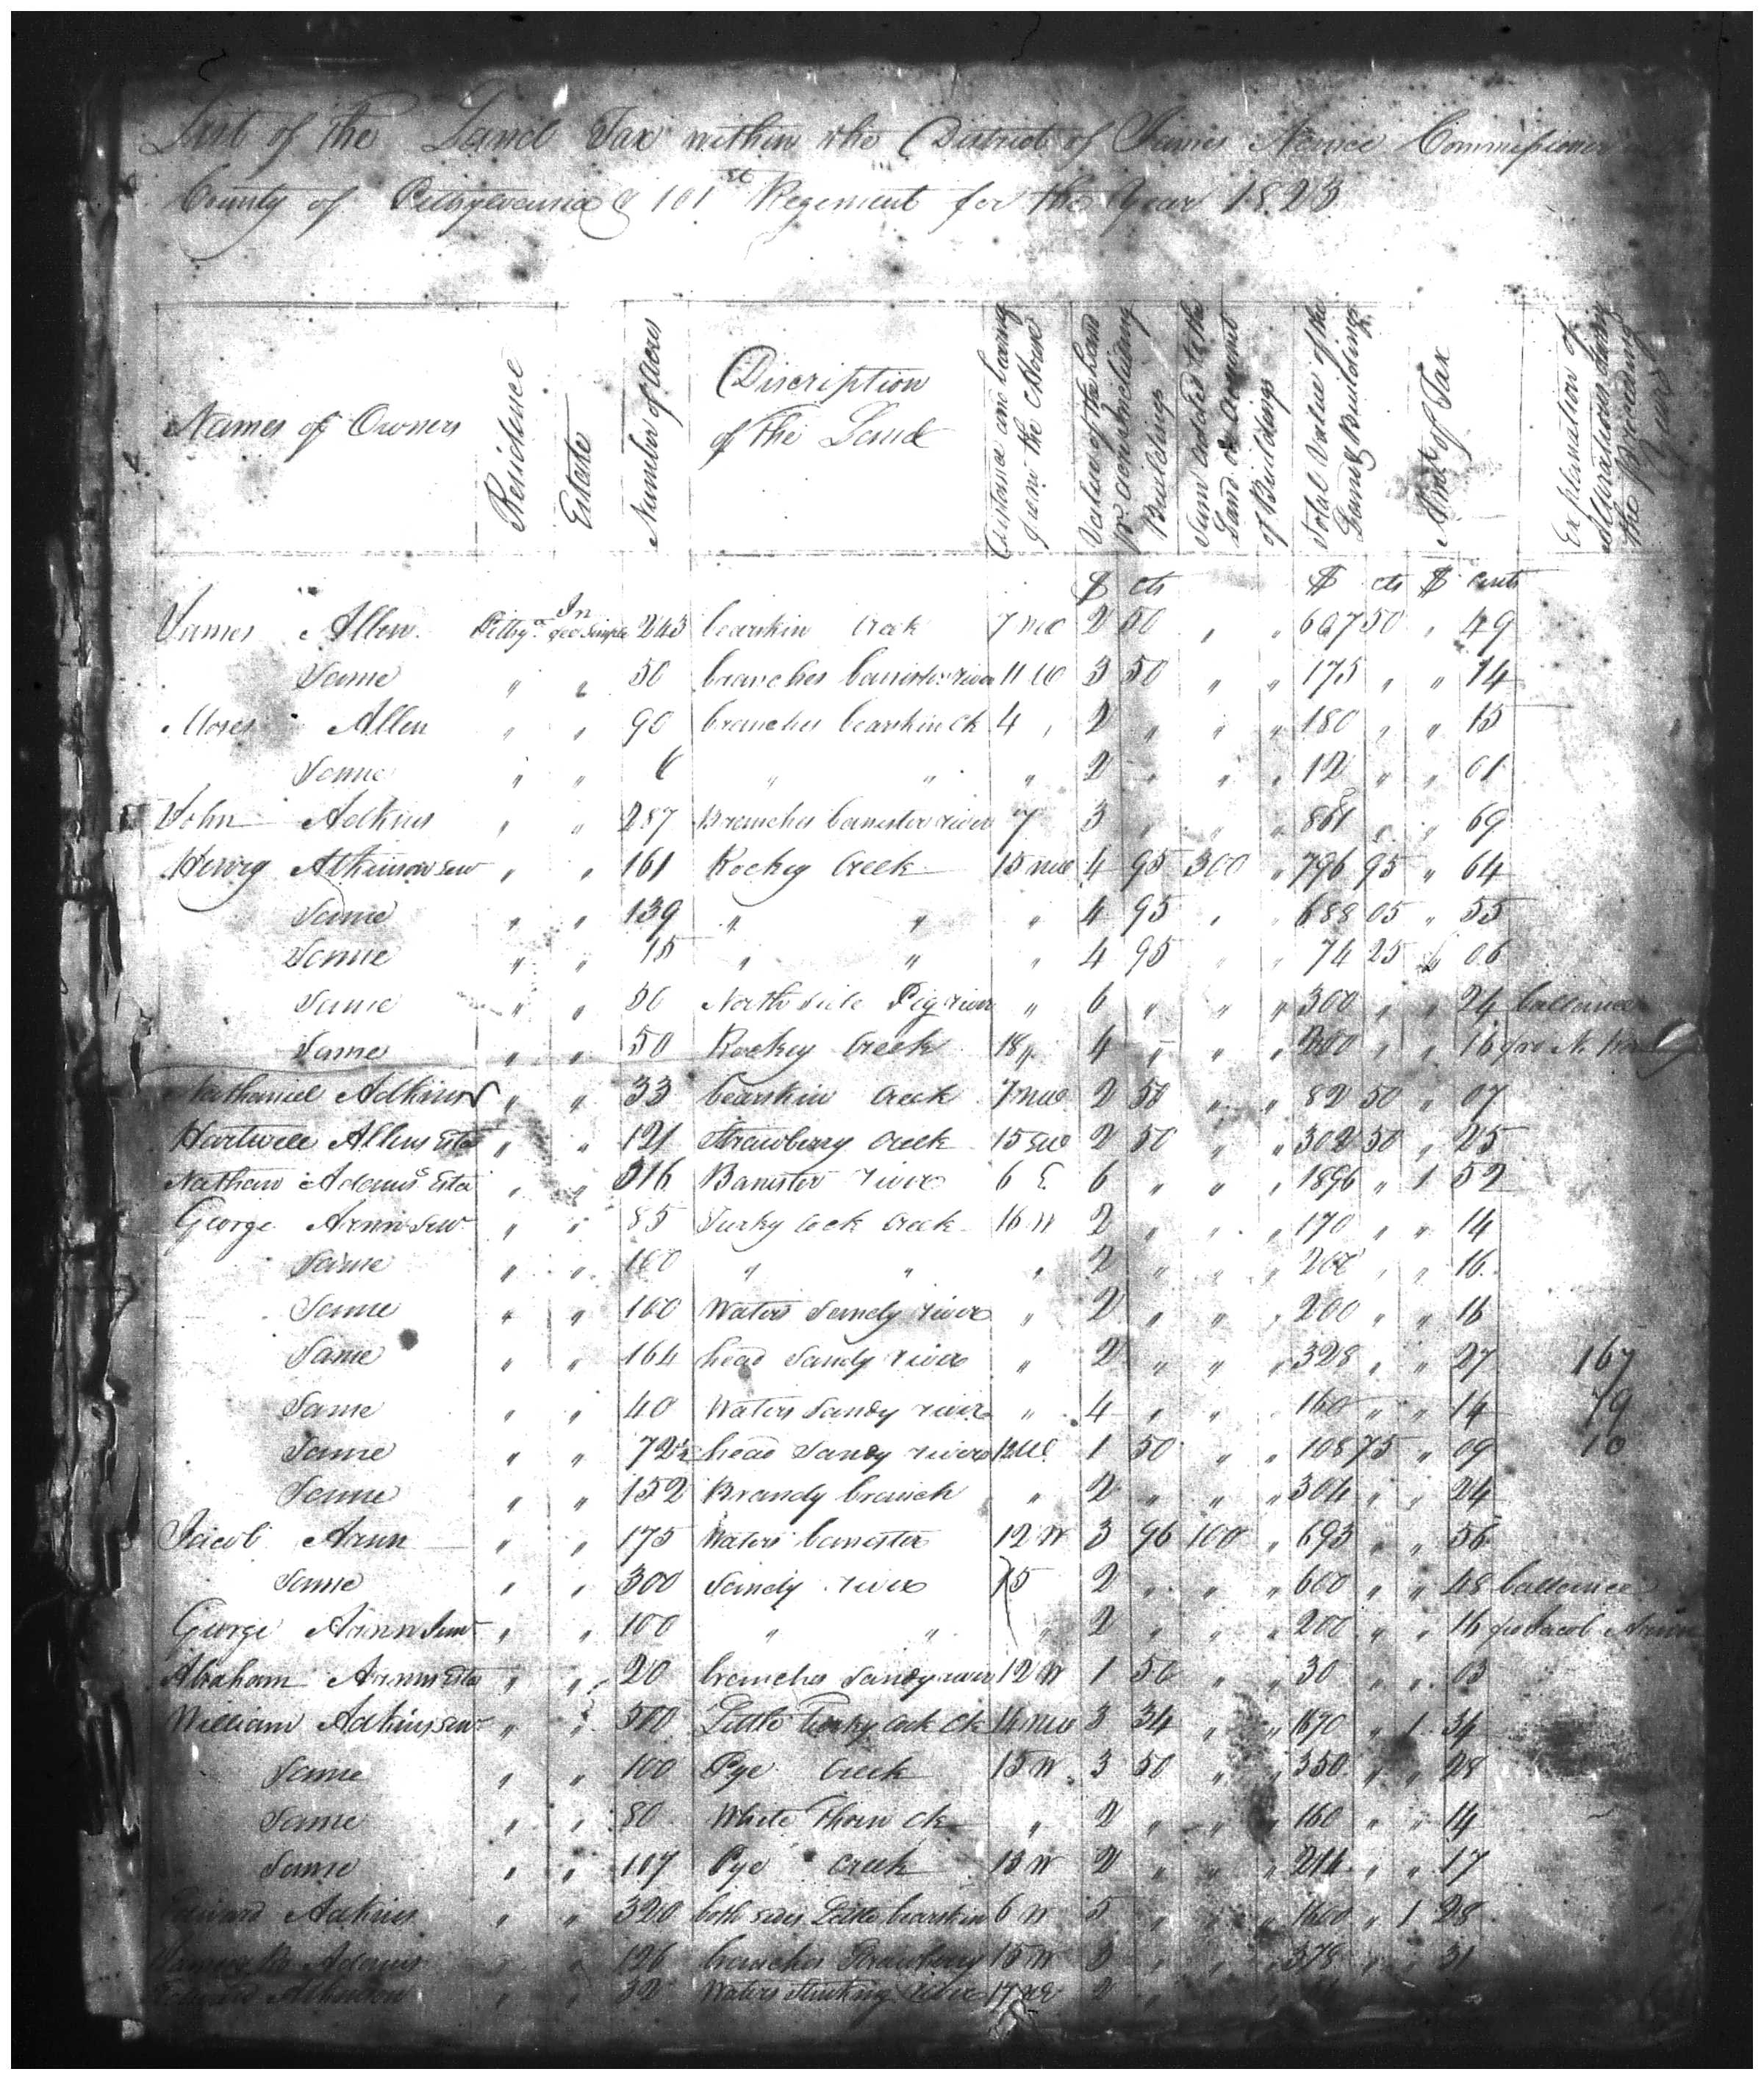 List of the Land Tax within the District of James Nance Commissioner
County of Pittsylvania & 101st Regiment for the Year 1823
Names of Owners Residence Estate Number of Acres Discription of the Land Distance and bearing from the CHouse Value of the Land pr Acre including Buildings Sum added to the Land on account of Buildings Total Value of the Land & Buildings Amt of Tax Explanation of Alterations during the Preceeding Year
$ cts $ cts $ cents
James Allen Pittsya In fee Simple 243 bearskin Creek 7 NW 2 50 " " 607 50 " 49
Same " " 50 branches banister river 11 W 3 50 " " 175 " " 14
Moses Allen " " 90 branches bearskin Ck 4 " 2 " " " 180 " " 15
Same " " 6 " " " 2 " " " 12 " " 01
John Adkins " " 287 Branches banister river 7 3 " " " 861 " " 69
Henry Atkinson Sen " " 161 Rockey Creek 15 NW 4 95 300 " 796 95 " 64
Same " " 139 " " " 4 95 " " 688 05 " 55
Same " " 15 " " " 4 95 " " 74 25 " 06
Same " " 50 North side Pigriver " 6 " " " 300 " " 24 ballance
Same " " 50 Rockey Creek 18 " 4 " " " 200 " " 16 fro N.
Nathaniel Adkins " " 33 bearskin Creek 7 NW 2 50 " " 82 50 " 07
Hartwell Allens Esta " " 121 Strawberry Creek 15 SW 2 50 " " 302 50 " 25
Nathan Adams Esta " " 316 Banister river 6 E 6 " " " 1896 " 1 52
George Arnn Sen " " 85 Turky Cock Creek 16 W 2 " " " 170 " " 14
Same " " 100 " " " 2 " " " 200 " " 16
Same " " 100 Waters Sandy river " 2 " " " 200 " " 16
Same " " 164 head Sandy river " 2 " " " 328 " " 27 167
Same " " 40 Waters Sandy river " 4 " " 160 " " 14 79
Same " " 72½ head Sandy river 12 W 1 50 " " 108 75 " 09 10
Same " " 152 Brandy branch " 2 " " " 304 " " 24
Jacob Arnn " " 175 Waters banister 12 W 3 96 100 " 693 " " 56
Same " " 300 Sandy river 15 2 " " " 600 " " 48 ballance
George Arnn Jun " " 100 " " " 2 " " " 200 " " 16 fro Jacob Arnn
Abraham Arnns Esta " " 20 branches Sandy river 12 W 1 50 " " 30 " " 03
William Adkins Sen " " 500 Little Turky Cock Ck 14 NW 3 34 " " 1670 " 1 34
Same " " 100 Pye Creek 15 W 3 50 " " 350 " " 28
Same " " 80 White Thorn Ck " 2 " " " 160 " " 14
Same " " 107 Pye Creek 15 W 2 " " " 214 " " 17
Edward Adkins " " 320 both sides Little bearskin 6 W 5 " " " 1600 " 1 28
Adams " " 126 branches Strawberry 15 W 3 " " " 378 " " 31
Atkinson " " 32 Waters Stinking river 17 2 "